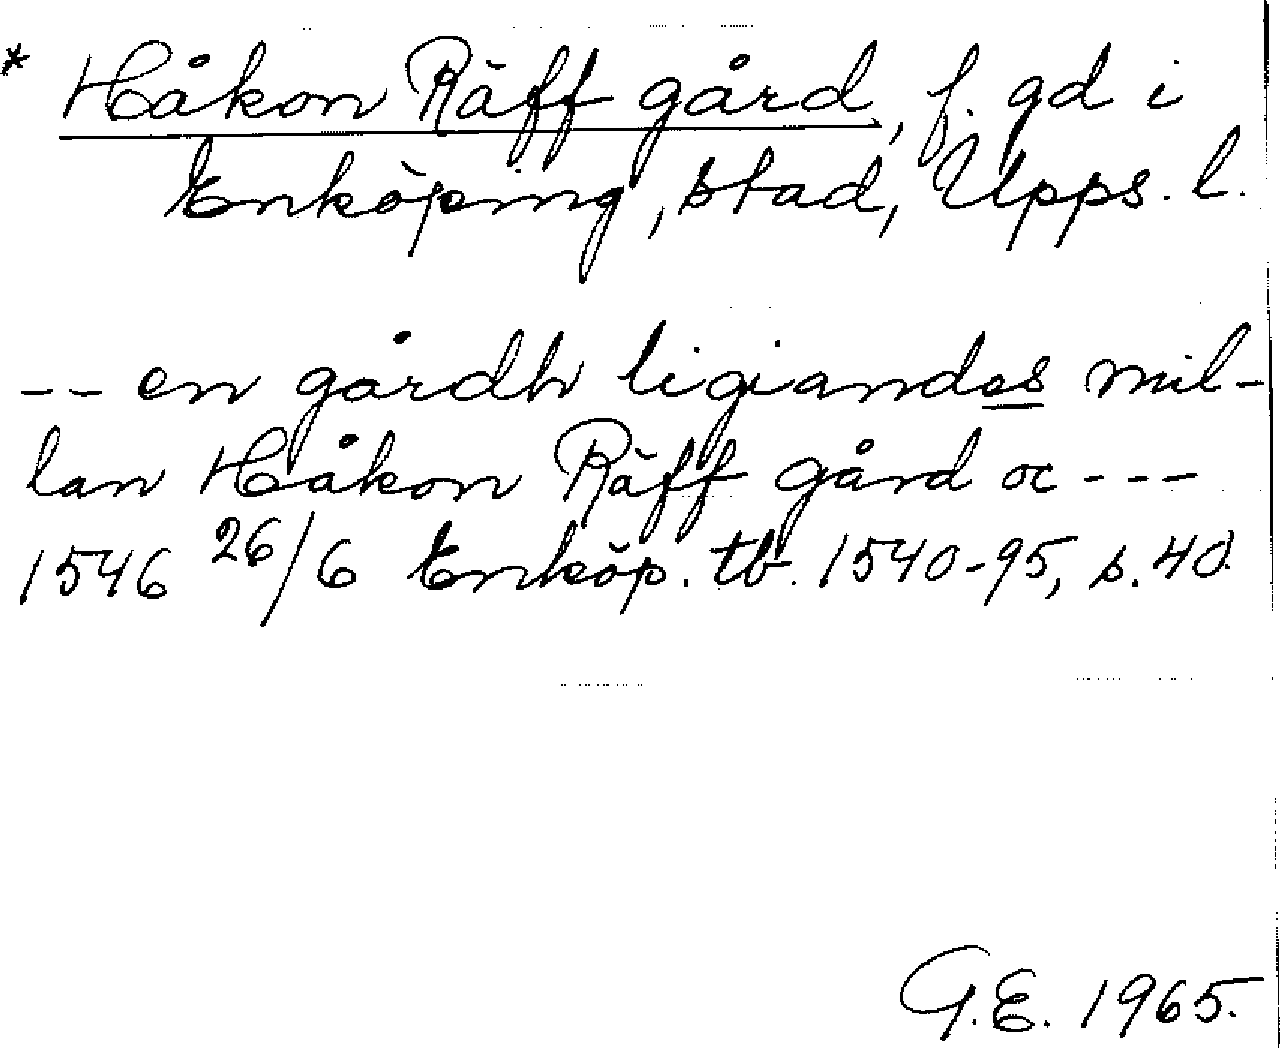 * Håkon Räff gård, f. gd i
Enköping, stad, Upps. l.
-- en gårdh ligiandes mil-
lan Håkon Räff gård oc ---
1546 26/6 Enköp. tb. 1540-95, s. 40.
G.E. 1965.